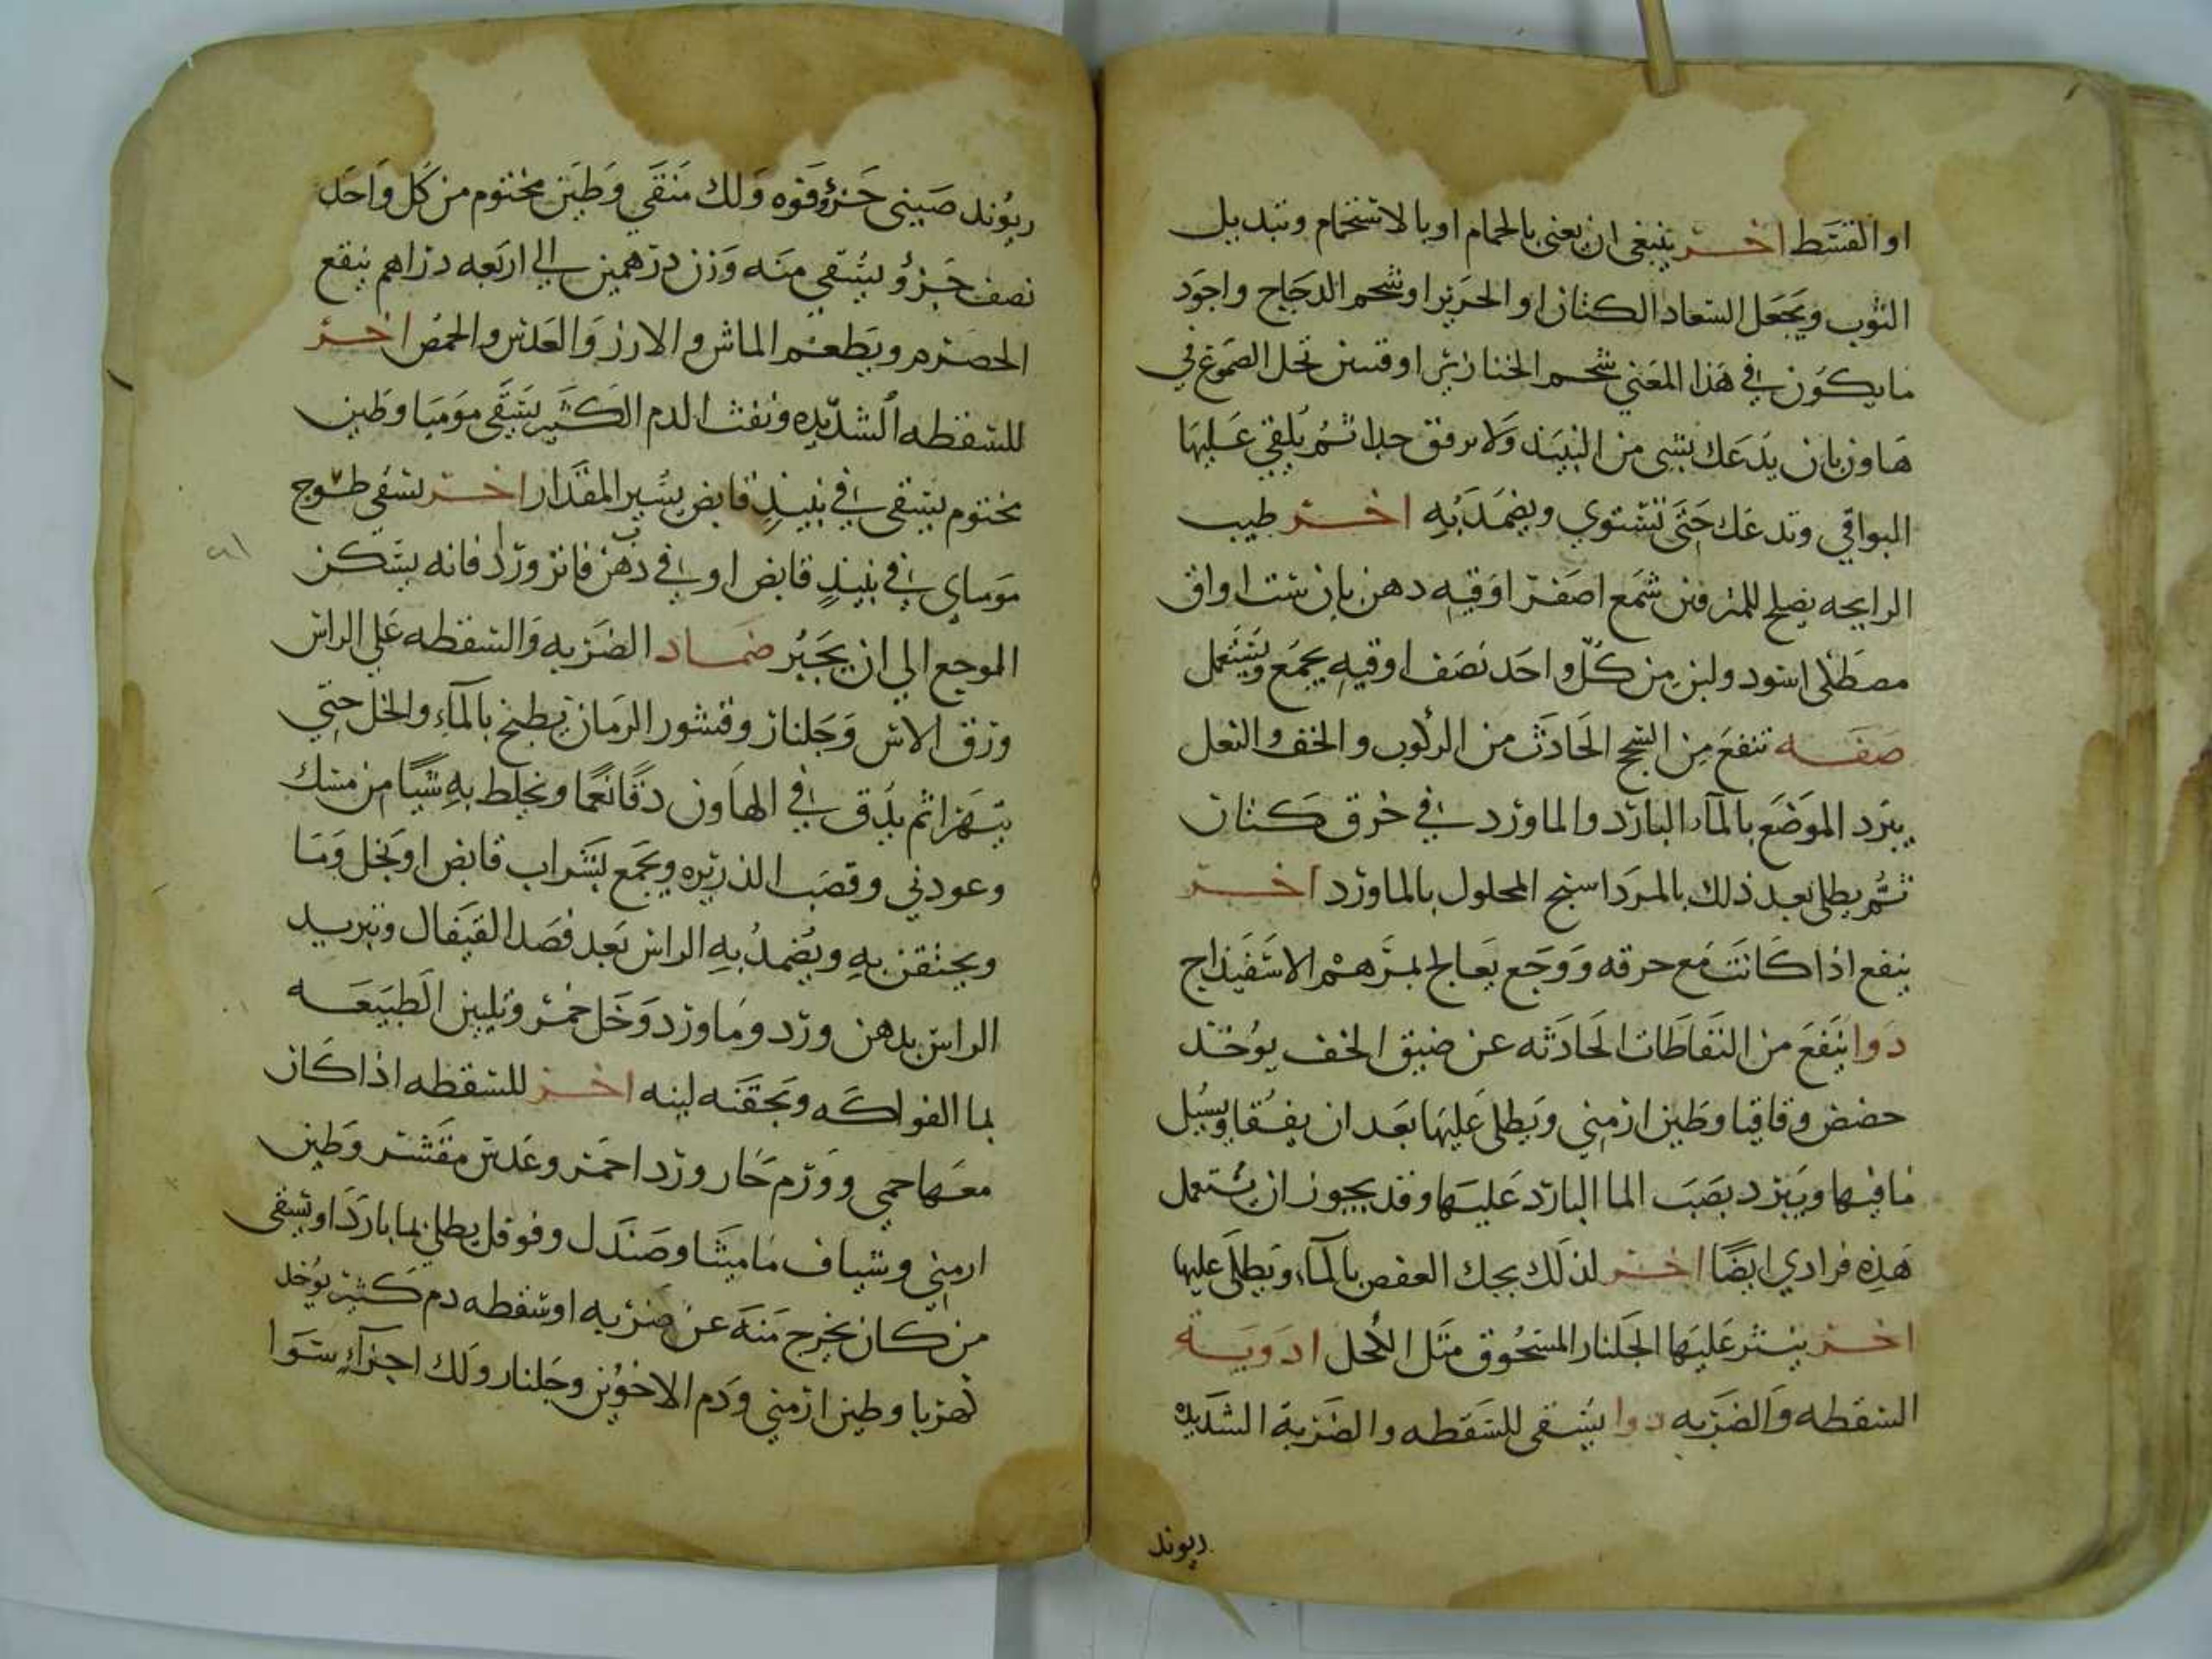 او القسط اخر ينبغي ان يعنى بالحمام او بالاستحمام وتبديل
الثوب ويجعل الشعار الكتان او الحرير او شحم الدجاج واجود
ما يكون في هذا المعنى شحم الخنازير او قسين تحل الصموغ في
هاون بان يدعك بشي من النبيذ ولا يرفق جدا ثم يلقي عليها
البواقي وتدعك حتى تستوي ويضمد به اخر طيب
الرايحه يصلح للمترفين شمع اصفر اوقيه دهن بان ست اواق
مصطكى اسود ولبن من كل واحد نصف اوقيه يجمع ويستعمل
صفه تنفع من السحج الحادث من الركوب والخف والنعل
يبرد الموضع بالماء البارد والماورد في خرق كتان
ثم يطلى بعد ذلك بالمرداسنج المحلول بالماورد اخر
ينفع اذا كانت مع حرقه ووجع يعالج بمرهم الاسفيداج
دوا ينفع من النفاطات الحادثه عن ضيق الخف يوخذ
حضض وقاقيا وطين ارمني ويطلى عليها بعد ان يفقا ويسيل
ما فيها ويبرد بصب الما البارد عليها وقد يجوز ان يستعمل
هذه فرادي ايضا اخر لذلك يحك العفص بالماء ويطلى عليها
اخر ينثر عليها الجلنار المسحوق مثل الكحل ادوية
السقطه والضربه دوا يسقى للسقطه والضربة الشديده
ريوند
ريوند صيني جزؤ وفوه ولك منقي وطين مختوم من كل واحد
نصف جزؤ يستقي منه وزن درهمين الي اربعه دراهم بنقع
الحصرم ويطعم الماش والارز والعدس والحمص اخر
للسقطه الشديده ونفث الدم الكثير يسقى موميا وطين
مختوم يستقى في نبيذ قابض يسير المقدار اخر يسقي طسوج
موماي في نبيذ قابض او في دهن فاتر ورد فانه يسكن
الموجع الي ان يجبر ضماد الضربه والسقطه علي الراس
ورق الاس وجلنار وقشور الرمان يطبخ بالماء والخل حتي
يتهرا ثم يدق في الهاون دقا نعما ويخلط به شيا من مسك
وعود ني وقصب الذريره ويجمع بشراب قابض او بخل وما
ويحتقن به ويضمد به الراس بعد فصد القيفال وتبريد
الراس بدهن ورد وماورد وخل خمر وتليين الطبيعه
بما الفواكه وبحقنه لينه اخر للسقطه اذا كان
معها حمي وورم حار ورد احمر وعدس مقشر وطين
ارمني وشياف ماميثا وصندل وفوفل يطلي بما بارد او يسقى
من كان يخرج منه عن ضربه او سقطه دم كثير يوخد
كهربا وطين ارمني ودم الاخوين وجلنار ولك اجزاء سوا